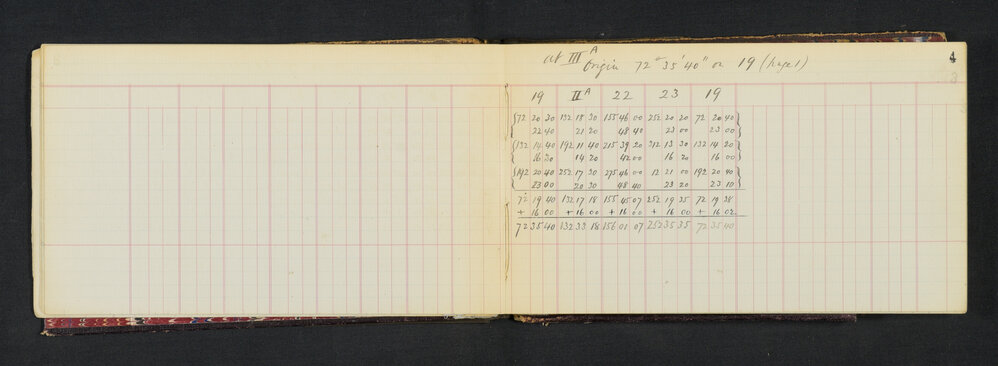 4
at III A
Origin 72° 35' 40" on 19 (page 1)
19 II A 22 23 19
72 20 30 132 18 30 155 46 00 252 20 20 72 20 40
22 40 21 20 48 40 23 00 23 00
132 14 40 192 11 40 215 39 20 312 13 30 132 14 20
16 30 14 20 42 00 16 20 16 00
192 20 40 252 17 30 275 46 00 12 21 00 192 20 40
23 00 20 30 48 40 23 20 23 10
72 19 40 132 17 18 155 45 07 252 19 35 72 19 38
+ 16 00 + 16 00 + 16 00 + 16 00 + 16 02
72 35 40 132 33 18 156 01 07 252 35 35 72 35 40